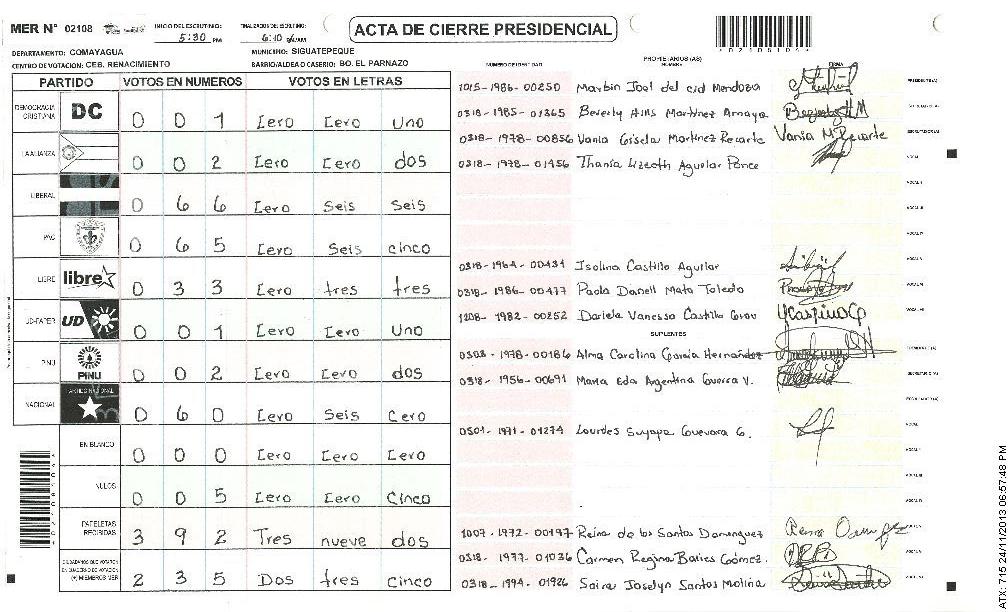 MER N° 02108
INICIO DEL ESCRUTINIO: 5:30 PM
FINALIZACION DEL ESCRUTINIO: 6:10
ACTA DE CIERRE PRESIDENCIAL
DEPARTAMENTO: COMAYAGUA
MUNICIPIO: SIGUATEPEQUE
CENTRO DE VOTACION: CEB. RENACIMIENTO
BARRIO/ALDEA O CASERIO: BO. EL PARNAZO
PARTIDO VOTOS EN NUMEROS VOTOS EN LETRAS
DEMOCRACIA CRISTIANA DC 0 0 1 Cero Cero Uno
LA ALIANZA 0 0 2 Cero Cero dos
LIBERAL 0 6 6 Cero Seis Seis
PAC 0 6 5 Cero Seis cinco
LIBRE libre 0 3 3 Cero tres tres
UD-FAPER UD 0 0 1 Cero Cero Uno
PINU PINU 0 0 2 Cero Cero dos
NACIONAL PARTIDO NACIONAL 0 6 0 Cero Seis Cero
EN BLANCO 0 0 0 Cero Cero Cero
NULOS 0 0 5 Cero Cero Cinco
PAPELETAS RECIBIDAS 3 9 2 Tres nueve dos
CIUDADANOS QUE VOTARON EN CUADERNO DE VOTACION (+) MIEMBROS MER 2 3 5 Dos tres cinco
NUMERO DE IDENTIDAD
PROPIETARIOS (AS)
NOMBRE
FIRMA
1015-1986-00250 Marbin Joel del cid Mendoza
0318-1985-01365 Beverly Hills Martinez Amaya
0318-1978-00856 Vania Gisela Martinez Recarte Vania M Recarte
0318-1978-01956 Thania Lizeth Aguilar Ponce
0318-1964-00431 Isolina Castillo Aguilar
0318-1986-00477 Paola Danell Mata Toledo
1208-1982-00252 Dariela Vanessa Castillo
SUPLENTES
0303-1978-00186 Alma Carolina Garcia Hernández
0318-1956-00691 Maria Eda Argentina Guerra V.
0501-1971-01274 Lourdes Suyapa Guevara G.
1007-1972-00197 Reina de los Santos Dominguez
0318-1977-01036 Carmen Regina Batres Gómez.
0318-1994-01926 Saira Joselyn Santos Molina
ATX-715 24/11/2013 06:57:48 PM